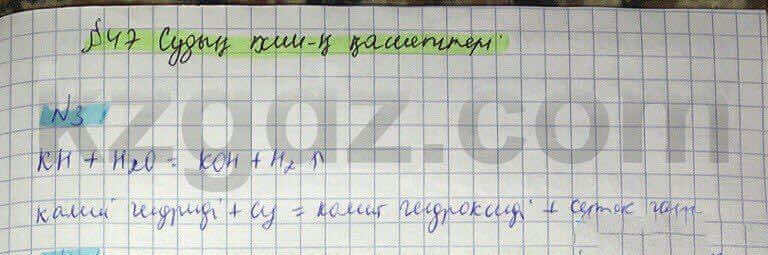 §47 Судың хим-қ қасиеттері
kzgdz.com
N3
KH + H₂O = KOH + H₂ ↑
калий гидриді + су = калий гидроксиді + сутек газы